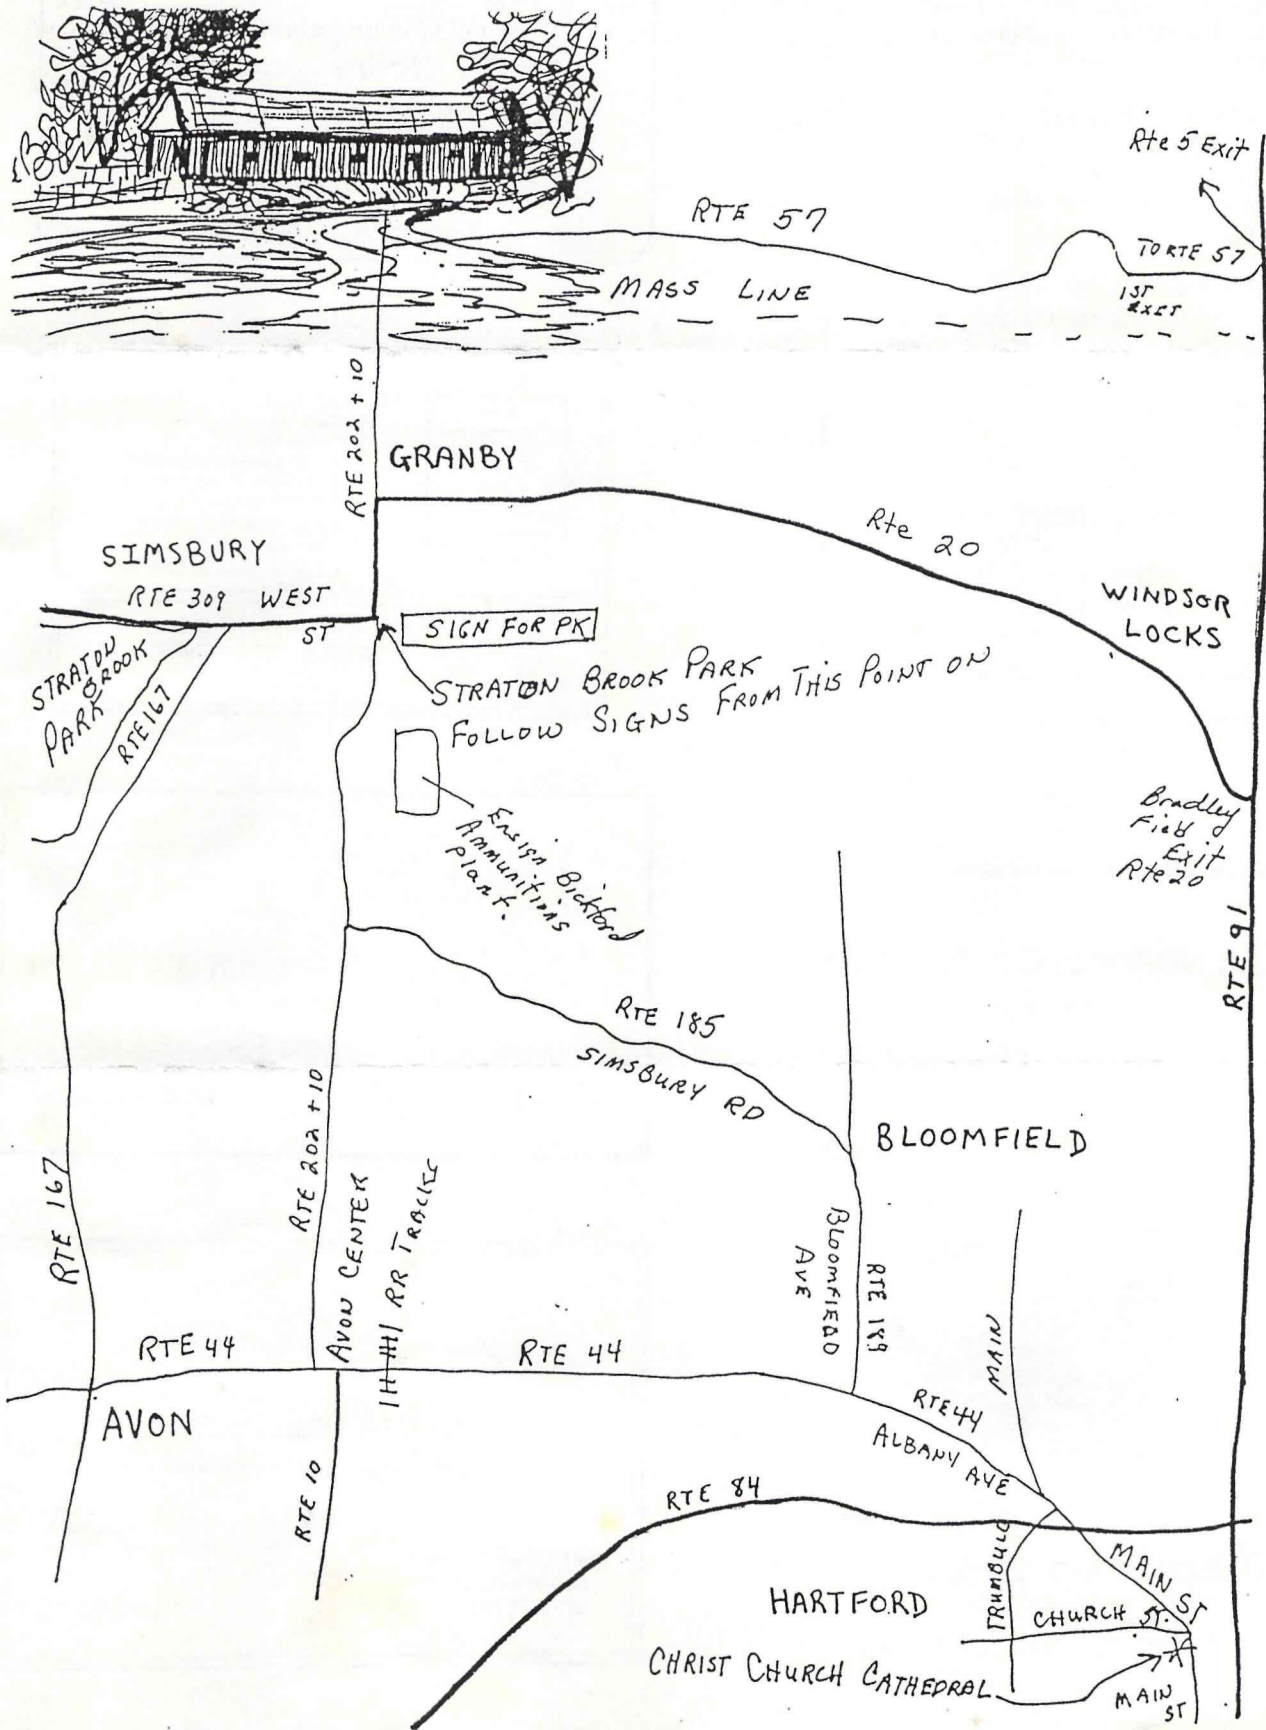 Rte 5 Exit
RTE 57
TO RTE 57
1ST
EXIT
MASS LINE
RTE 202 + 10
GRANBY
Rte 20
SIMSBURY
RTE 309 WEST
ST
SIGN FOR PK
WINDSOR
LOCKS
STRATON
BROOK
PARK
RTE 167
STRATON BROOK PARK
FOLLOW SIGNS FROM THIS POINT ON
Ensign Bickford
Ammunitions
Plant.
Bradley
Field
Exit
Rte 20
RTE 91
RTE 185
SIMSBURY RD
BLOOMFIELD
RTE 167
RTE 202 + 10
AVON CENTER
RR TRACKS
BLOOMFIELD
AVE
RTE 189
MAIN
RTE 44
RTE 44
RTE 44
ALBANY AVE
AVON
RTE 10
RTE 84
TRUMBULL
MAIN ST
HARTFORD
CHURCH ST.
CHRIST CHURCH CATHEDRAL
MAIN
ST